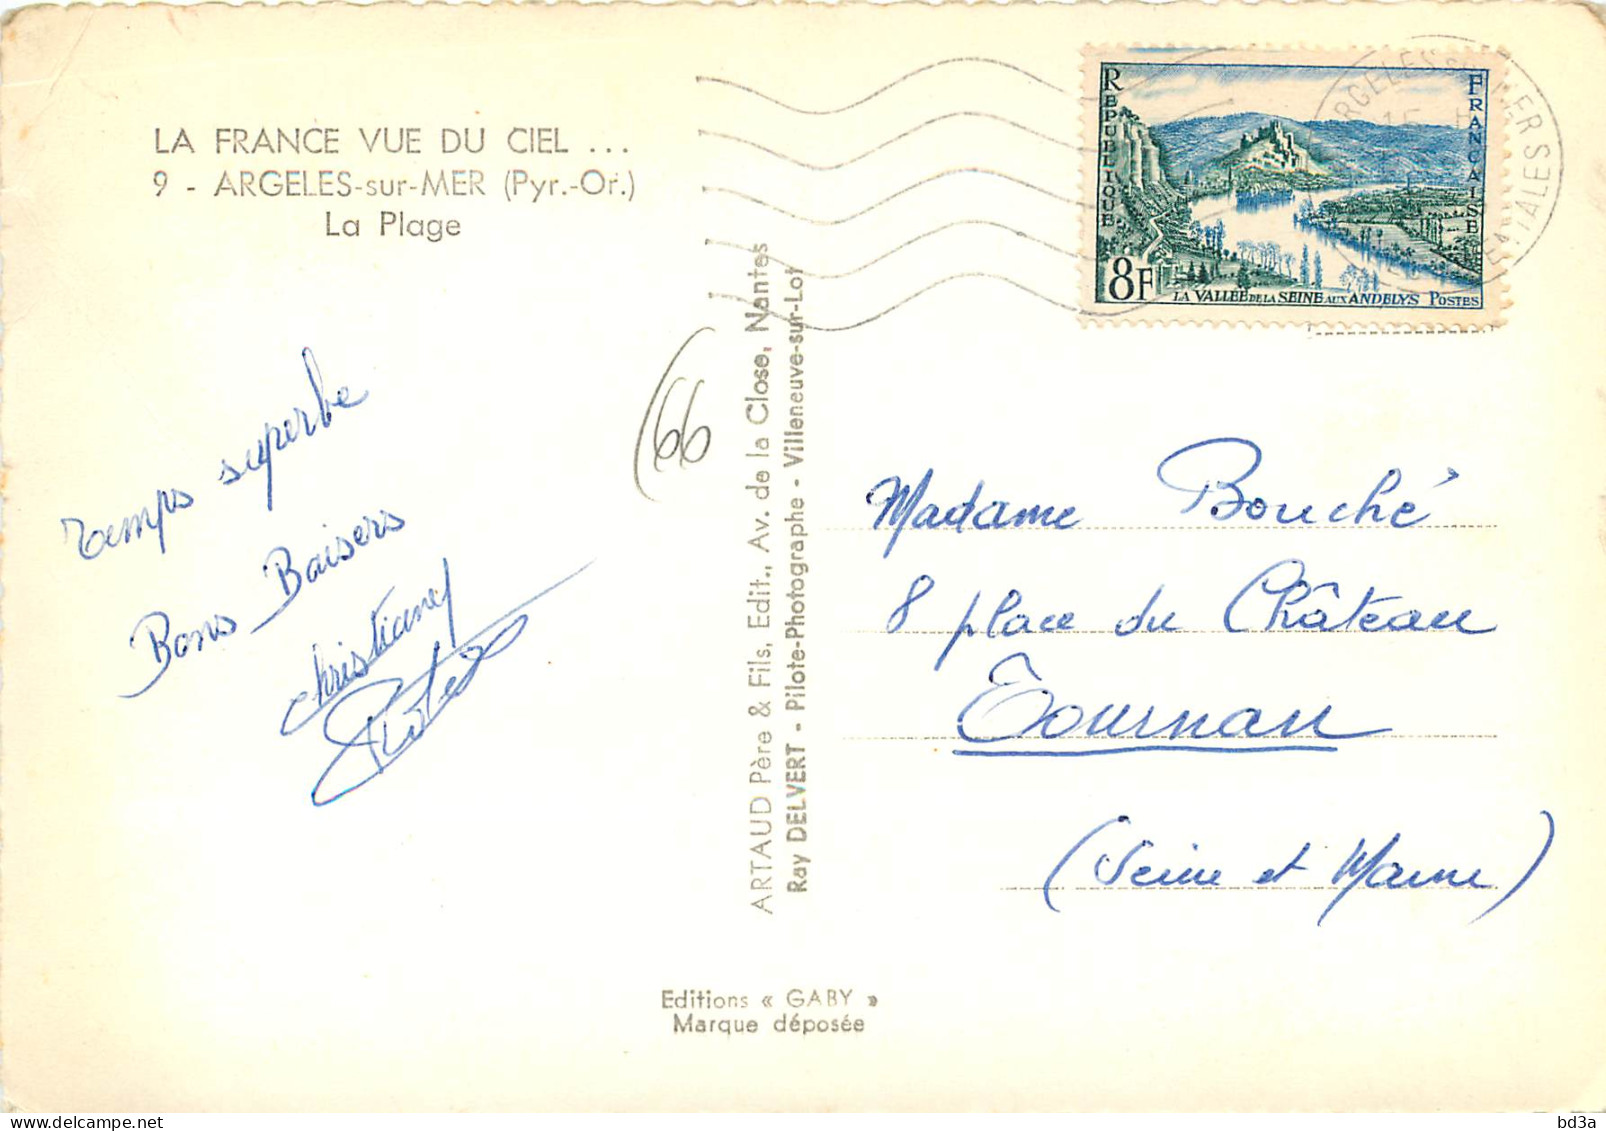 LA FRANCE VUE DU CIEL ...
9 - ARGELES-sur-MER (Pyr.-Or.)
La Plage
Temps superbe
Bons Baisers
Christiane
(66
ARTAUD Père & Fils, Edit., Av. de la Close, Nantes
Ray DELVERT - Pilote-Photographe - Villeneuve-sur-Lot
REPUBLIQUE FRANCAISE
8F
LA VALLEE DE LA SEINE AUX ANDELYS POSTES
ARGELES S MER
Madame Bouché
8 place du Château
Tournan
(Seine et Marne)
Editions « GABY »
Marque déposée
delcampe.net
bd3a